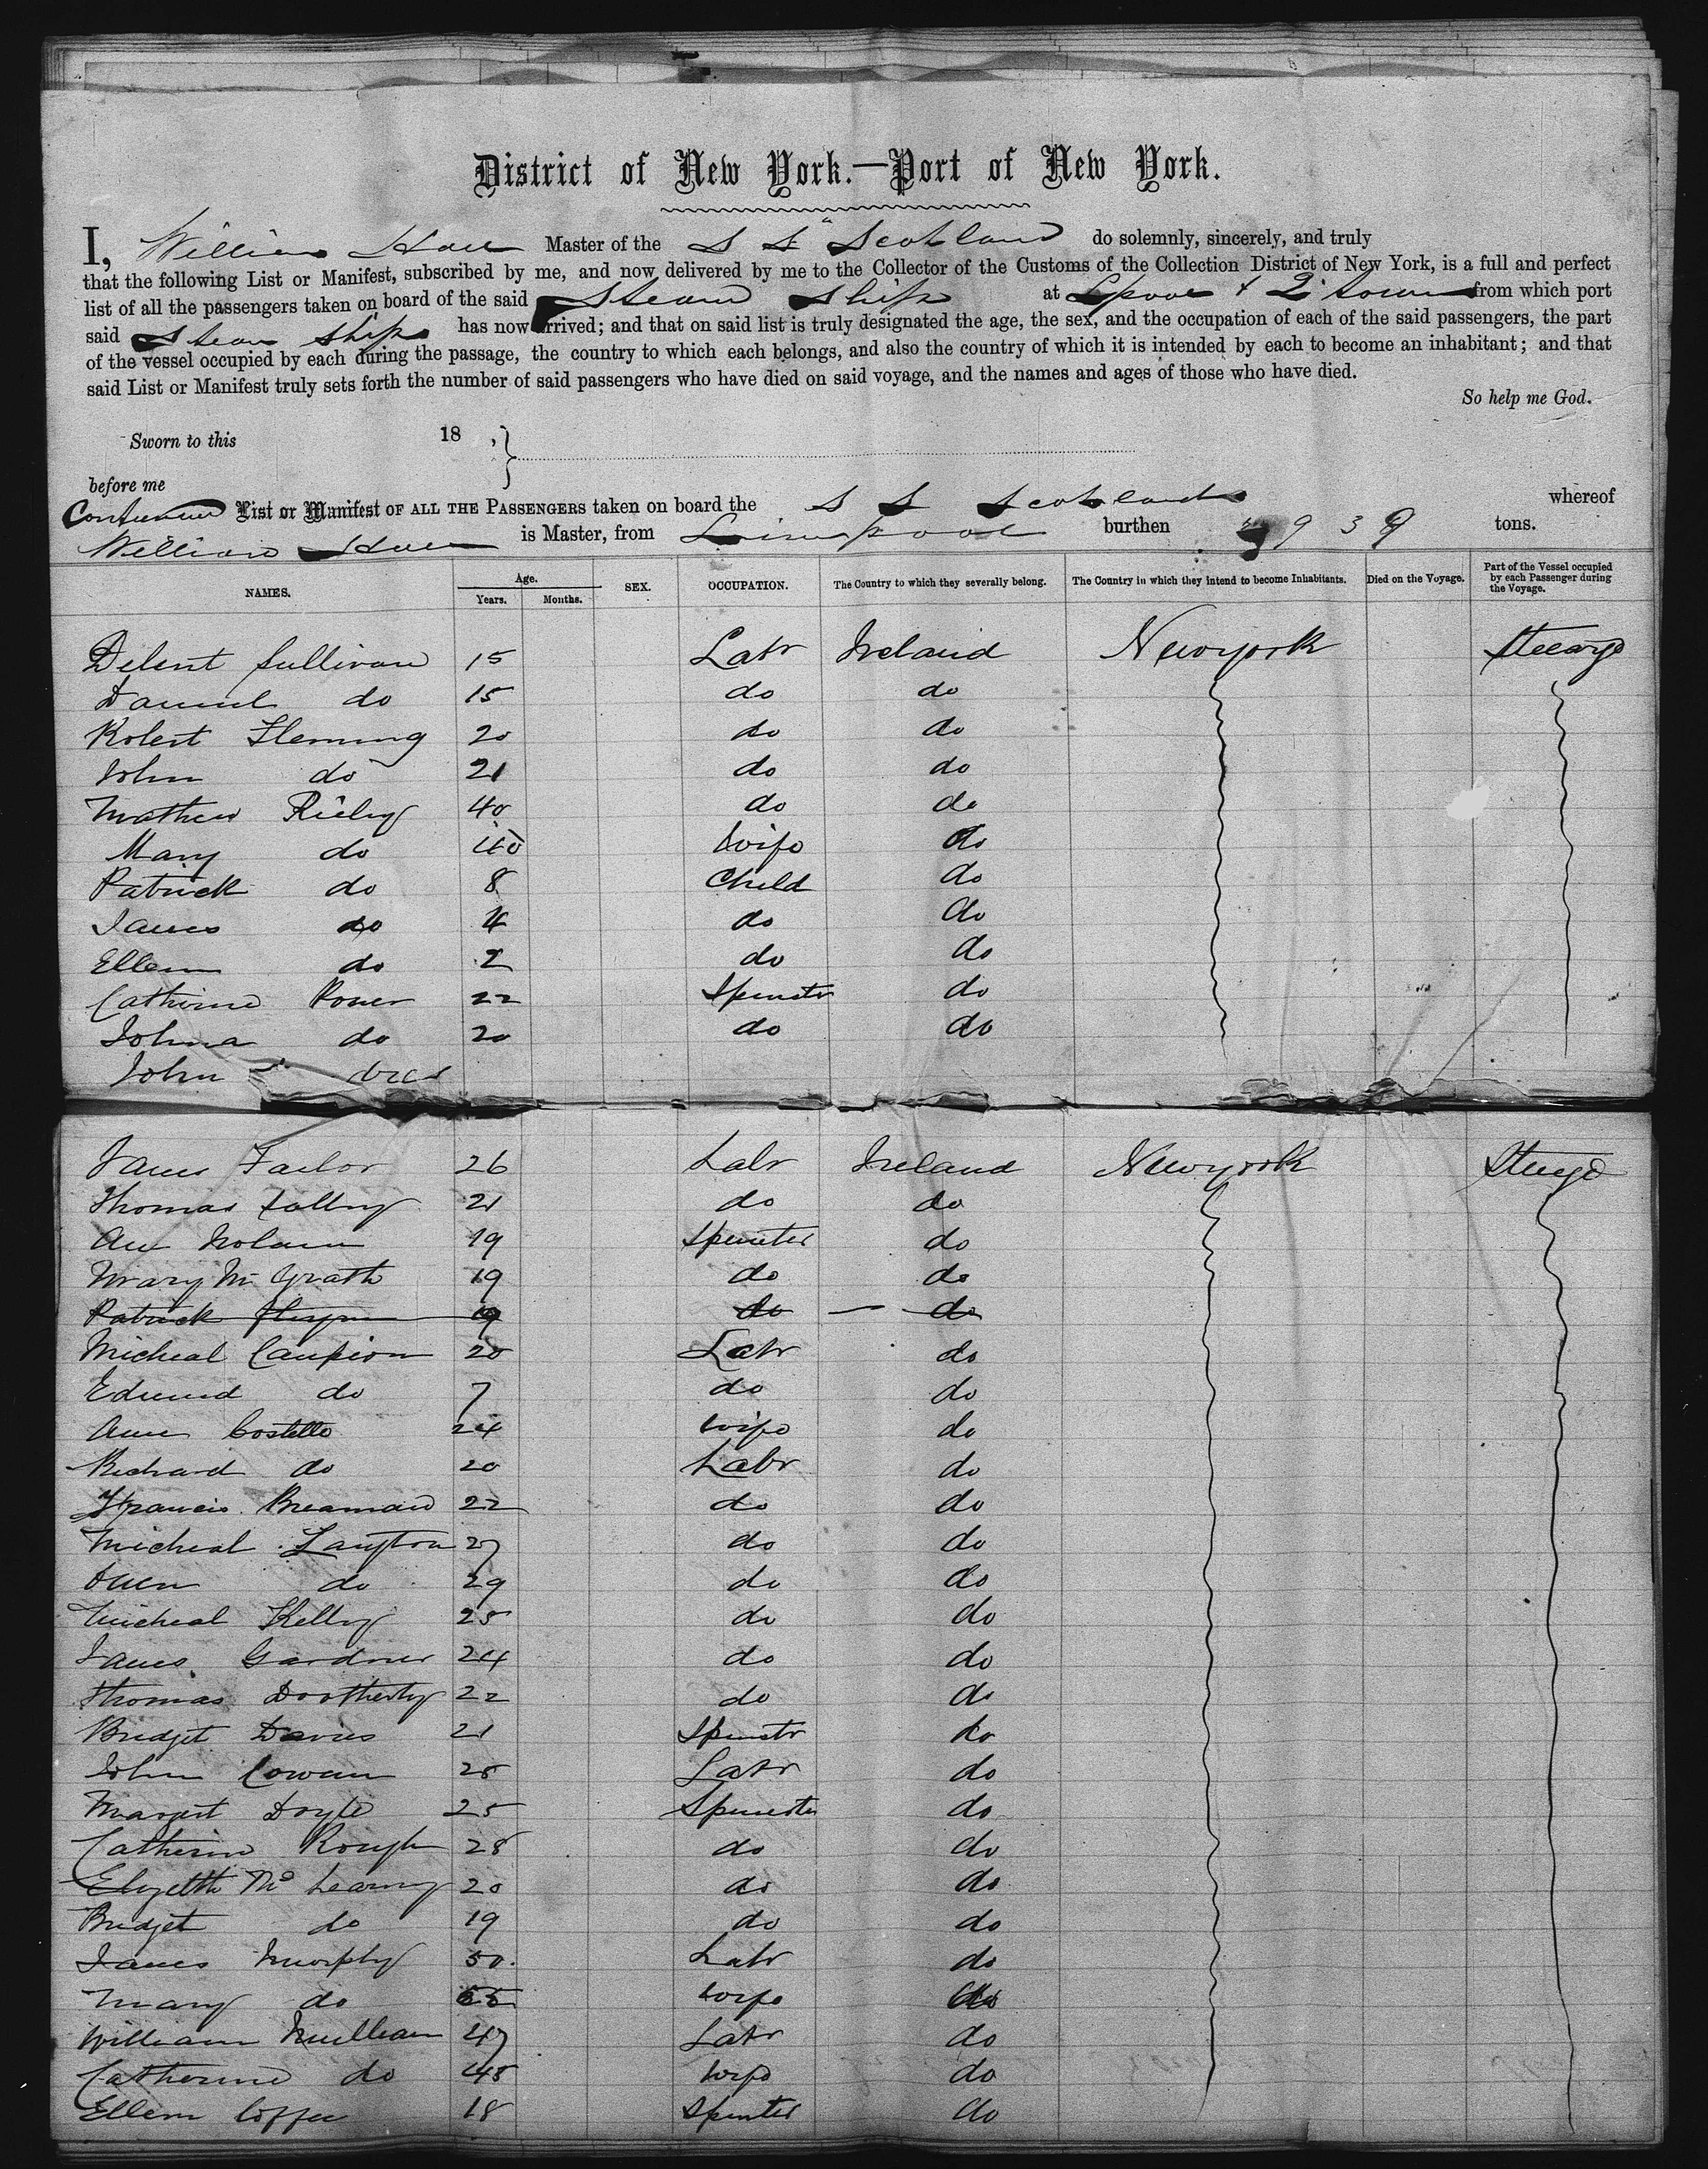 District of New York.—Port of New York.
I, William Hall Master of the S S "Scotland do solemnly, sincerely, and truly
that the following List or Manifest, subscribed by me, and now delivered by me to the Collector of the Customs of the Collection District of New York, is a full and perfect
list of all the passengers taken on board of the said Steam Ship at Lpool & Qtown from which port
said Steam Ship has now arrived; and that on said list is truly designated the age, the sex, and the occupation of each of the said passengers, the part
of the vessel occupied by each during the passage, the country to which each belongs, and also the country of which it is intended by each to become an inhabitant; and that
said List or Manifest truly sets forth the number of said passengers who have died on said voyage, and the names and ages of those who have died.
So help me God.
Sworn to this 18 ,
before me
List or Manifest OF ALL THE PASSENGERS taken on board the S S Scotland whereof
William Hall is Master, from Liverpool burthen 939 tons.
NAMES. Age. Years. Months. SEX. OCCUPATION. The Country to which they severally belong. The Country in which they intend to become Inhabitants. Died on the Voyage. Part of the Vessel occupied by each Passenger during the Voyage.
Sullivan 15 Labr Ireland Newyork Steerage
Daniel do 15 do do
Robert Fleming 20 do do
John do 21 do do
Mathew Rieley 40 do do
Mary do 40 Wife do
Patrick do 8 Child do
James do 4 do do
Ellen do 2 do do
Catherine Power 22 Spinstr do
Johna do 20 do do
John
James Failor 26 Labr Ireland Newyork Steerage
Thomas 21 do do
Ann Nolan 19 Spinster do
Mary Mc Grath 19 do do
Patrick 19 do — do
Micheal Campion 20 Labr do
Edmund do 7 do do
Ann Costello 24 Wife do
Richard do 20 Labr do
Francis Breanan 22 do do
Micheal Langton 27 do do
Owen do 29 do do
Micheal Kelly 25 do do
James Gardner 24 do do
Thomas Dootherty 22 do do
Bridget Davies 21 Spinstr do
John Cowan 25 Labr do
Margret Doyle 25 Spinster do
Catherine Rough 28 do do
Elyzeth Mc Learny 20 do do
Bridget do 19 do do
James Murphy 50 Labr do
Mary do 55 Wife do
William Mullean 47 Labr do
Catherine do 45 Wife do
Ellen Coffee 18 Spinster do